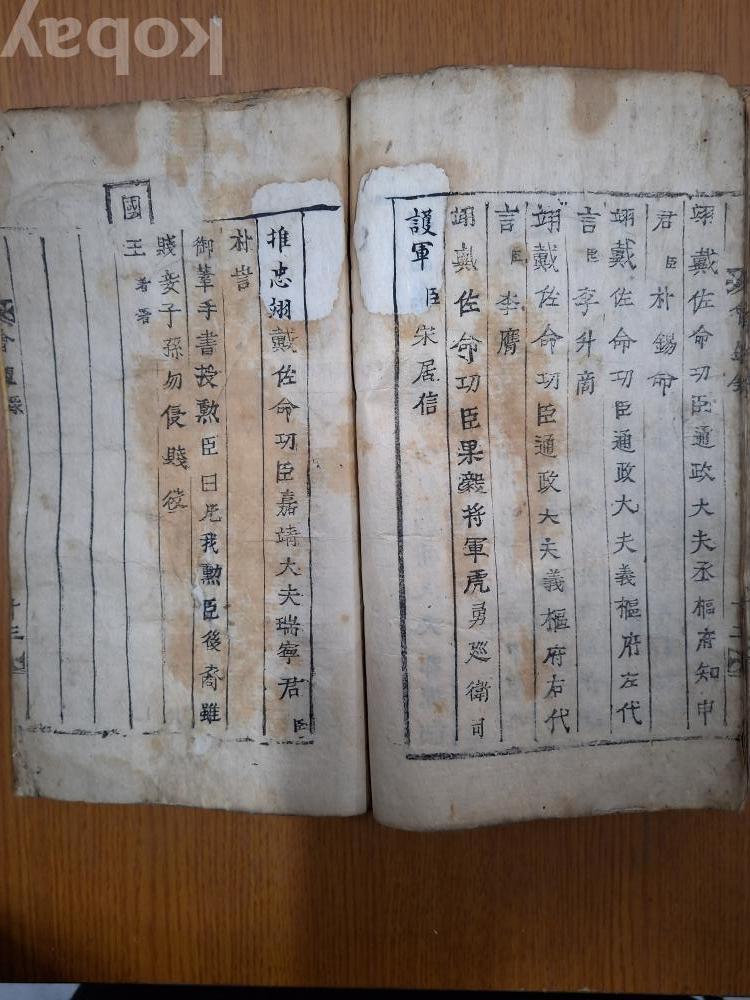 翊戴佐命功臣通政大夫丞樞府知申
君臣朴錫命
翊戴佐命功臣通政大夫義樞府左代
言臣李升商
翊戴佐命功臣通政大夫義樞府右代
言臣李膺
翊戴佐命功臣果毅將軍虎勇巡衛司
護軍臣宋居信
推忠翊戴佐命功臣嘉靖大夫瑞寧君臣
朴訔
御筆手書授勲臣曰凡我勲臣後裔雖
賤妾子孫勿侵賤役
國
王
着署
會盟錄
十三
kobay